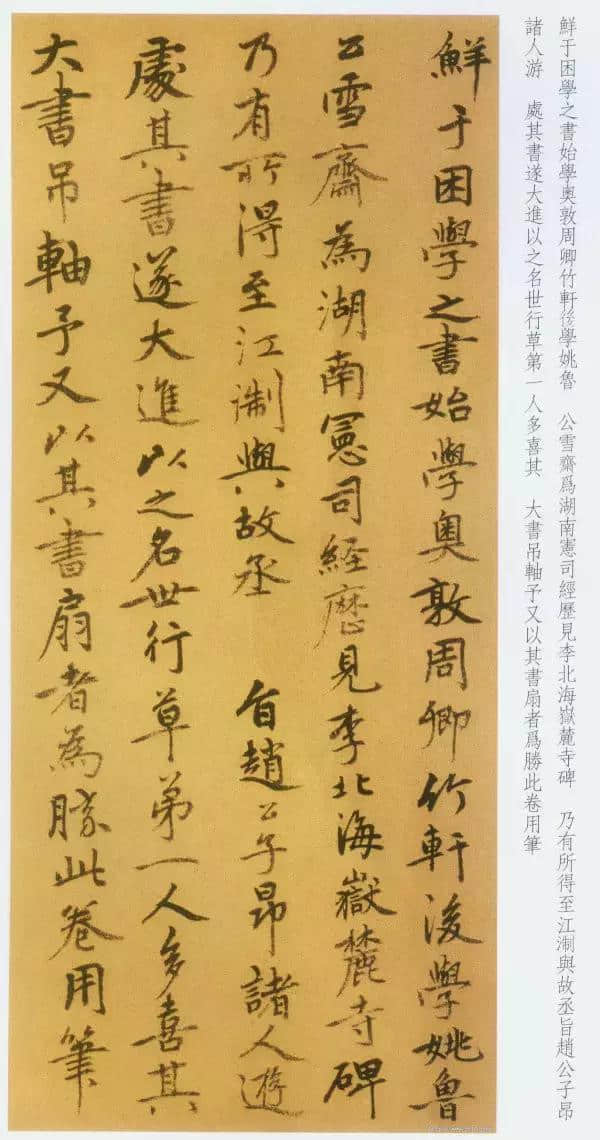 鮮于困學之書始學奧敦周卿竹軒後學姚魯　公雪齋爲湖南憲司經歷見李北海嶽麓寺碑　乃有所得至江淛與故丞旨趙公子昂
諸人游　處其書遂大進以之名世行草第一人多喜其　大書吊軸予又以其書扇者爲勝此卷用筆
鮮于困學之書始學奧敦周卿竹軒後學姚魯
公雪齋為湖南憲司經歷見李北海嶽麓寺碑
乃有所得至江淛與故丞　旨趙公子昂諸人遊
處其書遂大進以之名世行草第一人多喜其
大書吊軸予又以其書扇者為勝此卷用筆